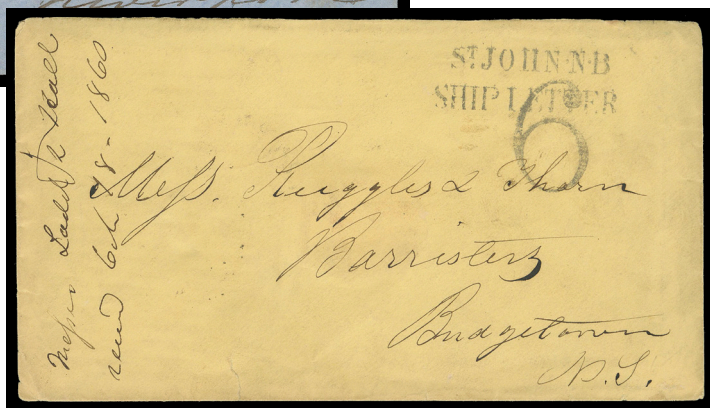 ST JOHN·N·B
SHIP LETTER
6
Mess. Ruggles & Thorn
Barristers
Bridgetown
N.S.
Messrs
recd Oct 18 - 1860